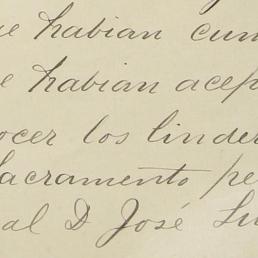 ue habian cum
e habian acep
ocer los linder
Sacramento pe
al D José Lu